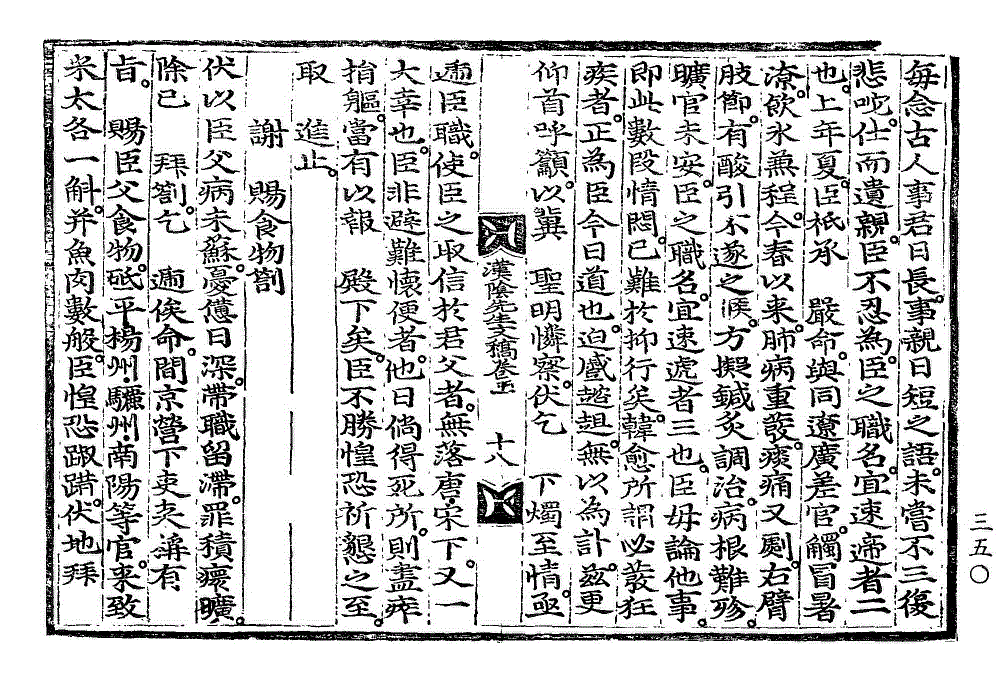 每念古人事君日長。事親日短之語。未嘗不三復
悲咜。仕而遺親。臣不忍為。臣之職名。宜速遞者二
也。上年夏。臣祗承　嚴命。與同遼廣差官。觸冒暑
潦。飮氷兼程。今春以来。肺病重發。痰痛又劇。右臂
肢節。有酸引不遂之候。方擬鍼灸調治。病根難殄。
曠官未安。臣之職名。宜速遞者三也。臣毋論他事。
即此數段情悶。已難於抑行矣。韓愈所謂必發狂
疾者。正為臣今日道也。迫慼趑趄。無以為計。玆更
仰首呼籲。以冀　聖明憐察。伏乞　下燭至情。亟
漢陰先生文稿卷之五　十八
遞臣職。使臣之取信於君父者。無落唐宋下。又一
大幸也。臣非避難懷便者。他日倘得死所。則盡瘁
捐軀。當有以報　殿下矣。臣不勝惶恐祈懇之至
取　進止。
謝　賜食物劄
伏以臣父病未蘇。憂僁日深。帶職留滯。罪積瘝曠。
除已　拜劄。乞　遞俟命。間京營下吏夫𬤇有
旨。　賜臣父食物。砥平楊州驪州南陽等官。来致
米太各一斛。并魚肉數般。臣惶恐踧踖。伏地拜
三五〇